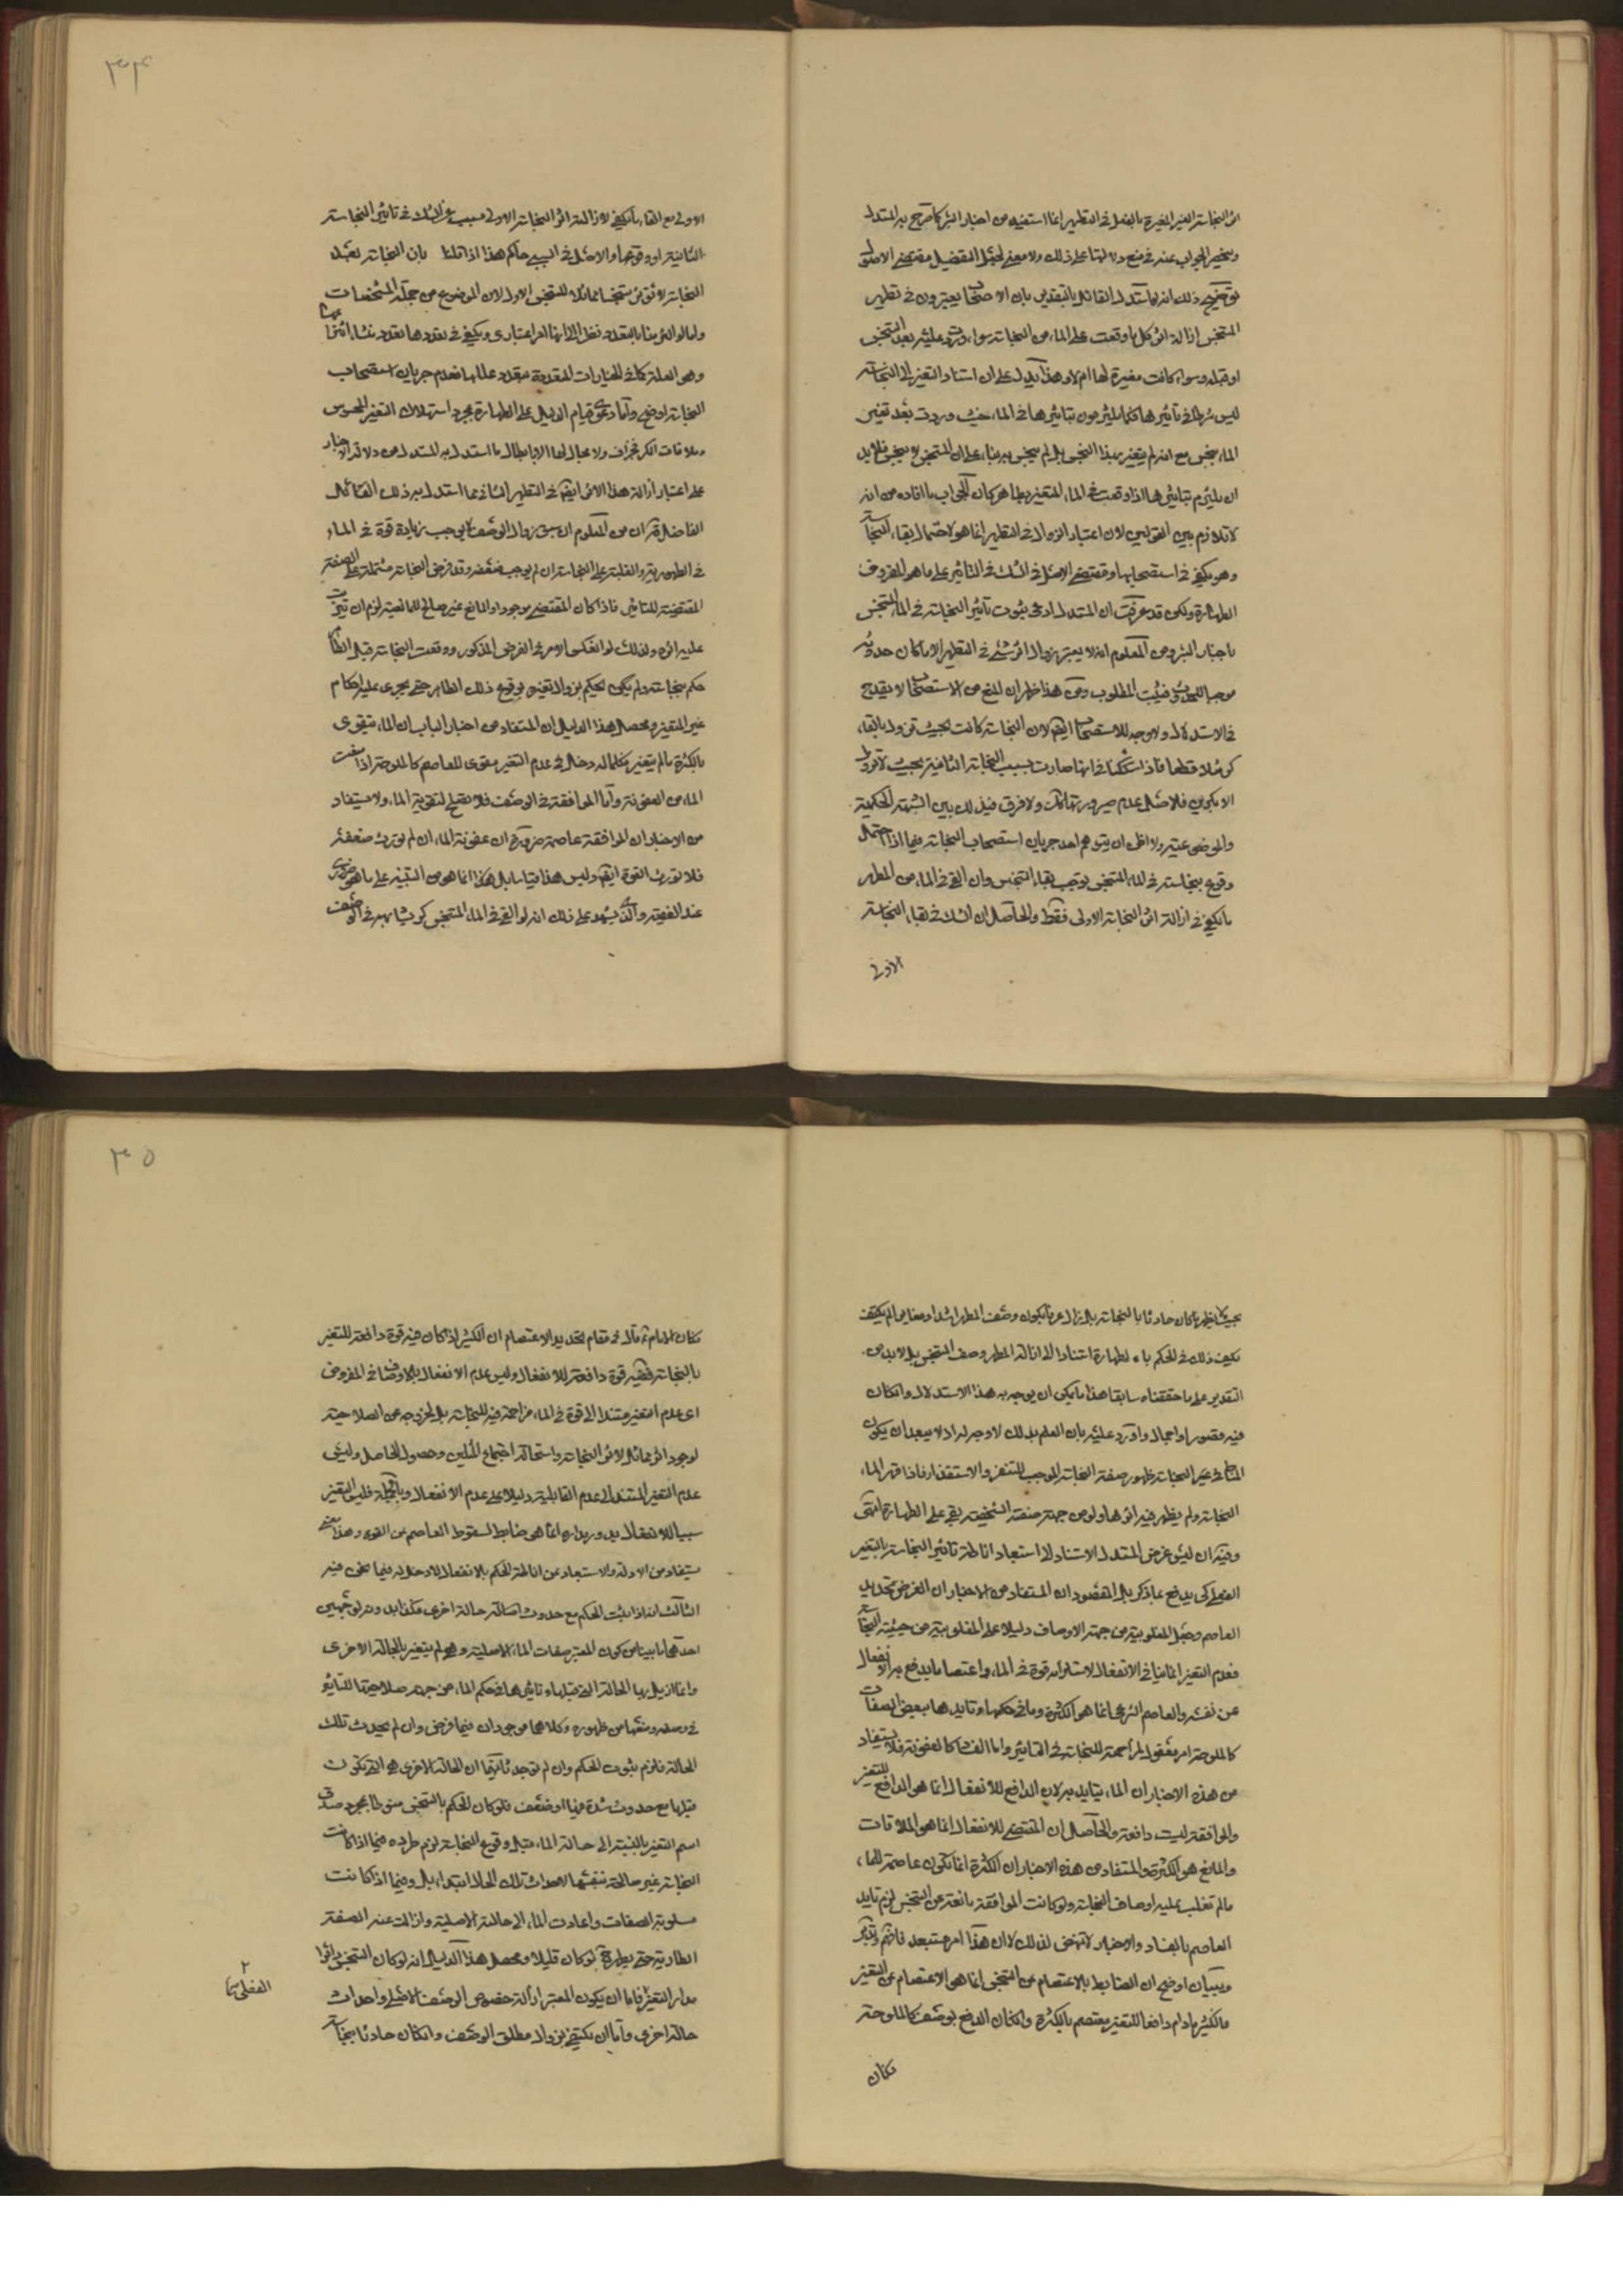 اثر النجاسة الغير المغيرة بالفعل في التطهير انما استفيد من اخبار البئر كما صرح به المستدل
وينحصر الجواب عنه في منع دلالتها على ذلك ولا معنى لجعل التفصيل مقتضى الاصول
توضيح ذلك انه لما استدل القائل بالتقدير بان الاصحاب يعتبرون في تطهير
المتنجس ازالة اثر كل ما وقعت على الماء من النجاسة سواء وردت عليه بعد التنجس
او قبله وسواء كانت مغيرة لها ام لا وهذا يدل على ان استناد التغير الى النجاسة
ليس شرطا في تاثيرها فكما يلتزمون بتاثيرها في الماء حيث وردت بعد تغير
الماء بنجس مع انه لم يتغير بهذا النجس بل لم ينجس به بناء على ان المتنجس لا ينجس فلا بد
ان يلتزم بتاثيرها اذا وقعت في الماء المتغير بطاهر كان الجواب ما افاده من انه
لا تلازم بين القولين لان اعتبار الزوال في التطهير انما هو لاحتمال بقاء النجاسة
وهو يكفي في استصحابها ومقتضى الاصل في الشك في التاثير على ما هو المفروض
الطهارة ولكن قد عرفت ان المستدل ادعى ثبوت تاثير النجاسة في الماء المتنجس
باخبار البئر ومن المعلوم انه لا يعتبر زوال اثر شئ في التطهير الا ما كان حدوثه
موجبا للحدث فيثبت المطلوب ومن هذا ظهر ان المنع من الاستصحاب لا يقدح
في الاستدلال ولا وجه للاستصحاب ايضا لان النجاسة كانت بحيث تزول بالقاء
كر مثلا قطعا فاذا شككنا في انها صارت بسبب النجاسة الثانية بحيث لا تزول
الا بكرين فالاصل عدم صيرورتها كذلك ولا فرق في ذلك بين الشبهة الحكمية
والموضوعية ولا اظن ان يتوهم احد جريان استصحاب النجاسة فيما اذا احتمل
وقوع نجاسة في الماء المتنجس يوجب بقاء التنجس وان القي في الماء من المطهر
ما يكفي في ازالة اثر النجاسة الاولى فقط والحاصل ان الشك في بقاء النجاسة
الاولى
٣٤
الاولى مع القاء ما يكفي لازالة اثر النجاسة الاولى مسبب عن الشك في تاثير النجاسة
الثانية او وقوعها والاصل في السببي حاكم هذا اذا قلنا بان النجاسة بعد
النجاسة لا تؤثر تنجسا مماثلا للتنجس الاول لان الموضوع من جملة المشخصات
واما لو التزمنا بالتعدد نظرا الى انها امر اعتباري ويكفي في تعددها تعدد منشا انتزاعها
وهو العلة كما في الخيارات المتعددة بتعدد عللها فعدم جريان استصحاب
النجاسة اوضح واما دعوى قيام الدليل على الطهارة بمجرد استهلاك التغير المحسوس
وملاقات الكر فجزاف ولا مجال لها الا بابطال ما استدل به المستدل من دلالة الاخبار
على اعتبار ازالة هذا الاثر ايضا في التطهير الثاني مما استدل به ذلك القائل
الفاضل قده ان من المعلوم ان سبق زوال الوصف لا يوجب زيادة قوة في الماء
في الطهورية والغلبة على النجاسة ان لم يوجب ضعفه وقد فرض النجاسة مشتملة على الصفة
المقتضية للتاثير فاذا كان المقتضي موجودا والمانع غير صالح للمانعية لزم ان يترتب
عليه اثره ولذلك لو انعكس الامر في الفرض المذكور ووقعت النجاسة قبل الطاهر
حكم بنجاسته ولم يكن يحكم بزوال تغيره بوقوع ذلك الطاهر حتى يجري عليه احكام
غير المتغير ومحصل هذا الدليل ان المستفاد من اخبار الباب ان الماء يتقوى
بالكثرة ما لم يتغير فكلما له دخل في عدم التغير مقوى للعاصم كالملوحة اذا منعت
الماء من العفونة واما الموافقة في الوصف فلا تصلح لتقوية الماء ولا يستفاد
من الاخبار ان الموافقة عاصمة ضرورة ان عفونة الماء ان لم تورث ضعفه
فلا تورث القوة ايضا وليس هذا قياسا بل هكذا انما هو من التنبيه على ما هو ضروري
عند الفقيه والذي يشهد على ذلك انه لو القي في الماء المتنجس كر يشابهه في الوصف
بحيث لا يظهر ما كان حادثا بالنجاسة بل زال عرفا بكون وصف المطهر اشد او مغاير لم يكتف
بكون ذلك في الحكم بالطهارة استنادا الى ازالة المطهر وصف التنجس بل لا بد من
التقدير على ما حققناه سابقا هذا ما يمكن ان يوجه به هذا الاستدلال وان كان
فيه قصور او اجمال واورد عليه بان العلم بذلك لا وجه له اذ لا يبعد ان يكون
المناط في غير النجاسة ظهور صفة النجاسة الموجب للتنفر والاستقذار فاذا قهر الماء
النجاسة ولم يظهر فيه اثرها ولو من جهة صفته الشخصية بقي على الطهارة انتهى
وفيه ان ليس غرض المستدل الاستناد الى استبعاد اناطة تاثير النجاسة بالتغير
الفعلي كي يدفع بما ذكر بل المقصود ان المستفاد من الاخبار ان الغرض تحديد
العاصم وجعل المغلوبية من جهة الاوصاف دليلا على المغلوبية من حيثية النجاسة
فعدم التغير انما ينافي الانفعال لاستلزامه قوة في الماء واعتصاما يدفع به الانفعال
عن نفسه والعاصم الشرعي انما هو الكثرة وما في حكمها وتايدها ببعض الصفات
كالملوحة امر معقول لمزاحمة للنجاسة في التاثير واما الفساد كالعفونة فلا يستفاد
من هذه الاخبار ان الماء يتايد به لان الدافع للانفعال انما هو الدافع للتغير
والموافقة ليست دافعة والحاصل ان المقتضي للانفعال انما هو الملاقات
والمانع هو الكثرة والمستفاد من هذه الاخبار ان الكثرة انما تكون عاصمة للماء
ما لم تغلب عليه اوصاف النجاسة ولو كانت الموافقة مانعة عن التنجس لزم تايد
العاصم بالفساد والاخبار لا تنهض لذلك لان هذا امر مستبعد فافهم وتدبر
وببيان اوضح ان الضابط بالاعتصام عن التنجس انما هو الاعتصام عن التغير
فالكثير ما دام دافعا للتغير معتصم بالكثرة وان كان الدفع بوصف كالملوحة
فكان
٣٥
فكان الامام ع قال في مقام تحديد الاعتصام ان الكثير اذا كان فيه قوة دافعة للتغير
بالنجاسة ففيه قوة دافعة للانفعال وليس عدم الانفعال بالاوصاف في المفروض
اي عدم التغير مستندا الى قوة في الماء مزاحمة فيه للنجاسة بل لخروجه عن الصلاحية
لوجود اثر مماثل لاثر النجاسة واستحالة اجتماع المثلين وحصول الحاصل وليس
عدم التغير المستند الى عدم القابلية دليلا على عدم الانفعال وبالجملة فليس التغير
سببا للانفعال يدور مداره انما هو ضابط لسقوط العاصم عن القوة وهذا معنى
يستفاد من الادلة والاستبعاد عن اناطة الحكم بالانفعال لا دخل له فيما نحن فيه
الثالث انه اذا ثبت الحكم مع حدوث حالة اخرى فكذا بدونه لوجهين
احدهما ما بينا من كون المعتبر صفات الماء الاصلية وهو لم يتغير بالحالة الاخرى
وانما ازيل بها الحالة التي قبلها وتاثيرها في حكم الماء من جهة صلاحيتها للتاثير
في وصفه ومنعها من ظهوره وكلاهما موجودان فيما فرض وان لم يحدث تلك
الحالة فلزم ثبوت الحكم وان لم توجد ثانيهما ان الحالة الاخرى هي التي تكون
قبلها مع حدوث شدة فيها او ضعف فلو كان الحكم بالتنجس منوطا بمجرد صدق
اسم التغير بالنسبة الى حالة الماء قبل وقوع النجاسة لزم طرده فيما اذا كانت
النجاسة غير صالحة بنفسها لاحداث تلك الحال ابتداء بل وفيما اذا كانت
مسلوبة الصفات واعادت الماء الى حالته الاصلية وازالت عنه الصفة
الطارية حتى يطهر به لو كان قليلا ومحصل هذا الدليل انه لو كان التنجس دائرا
مدار التغير فاما ان يكون المعتبر ازالة خصوص الوصف الاصلي واحداث
حالة اخرى واما ان يكتفى بزوال مطلق الوصف وان كان حادثا بنجاسة
٢
الفعلي